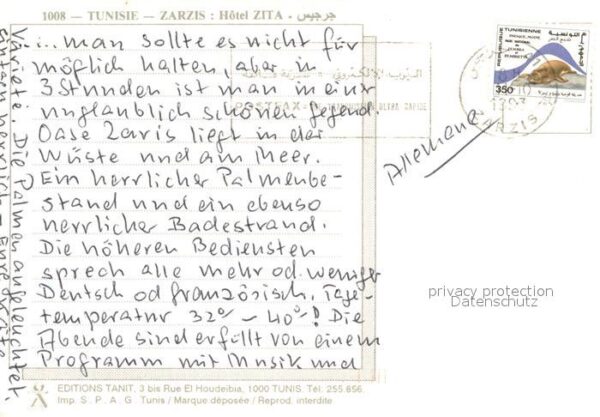 1008 — TUNISIE — ZARZIS : Hôtel ZITA - جرجيس
... man sollte es nicht für
möglich halten, aber in
3 Stunden ist man in einer
unglaublich schönen Gegend.
Oase Zarzis liegt in der
Wüste und am Meer.
Ein herrlicher Palmenbe-
stand und ein ebenso
herrlicher Badestrand.
Die höheren Bediensten
sprech alle mehr od. weniger
Deutsch od französisch. Tage-
temperatur 32° - 40°! Die
Abende sind erfüllt von einem
Programm mit Musik und
Variete. Die Palmen angeleuchtet.
Einfach herrlich - Eure Käte
POSTFAX
REPUBLIQUE TUNISIENNE
350
ZARZIS
Allemagne
privacy protection
Datenschutz
EDITIONS TANIT. 3 bis Rue El Houdeibia, 1000 TUNIS. Tél. 255.656.
Imp. S. P. A. G Tunis / Marque déposée / Reprod. interdite